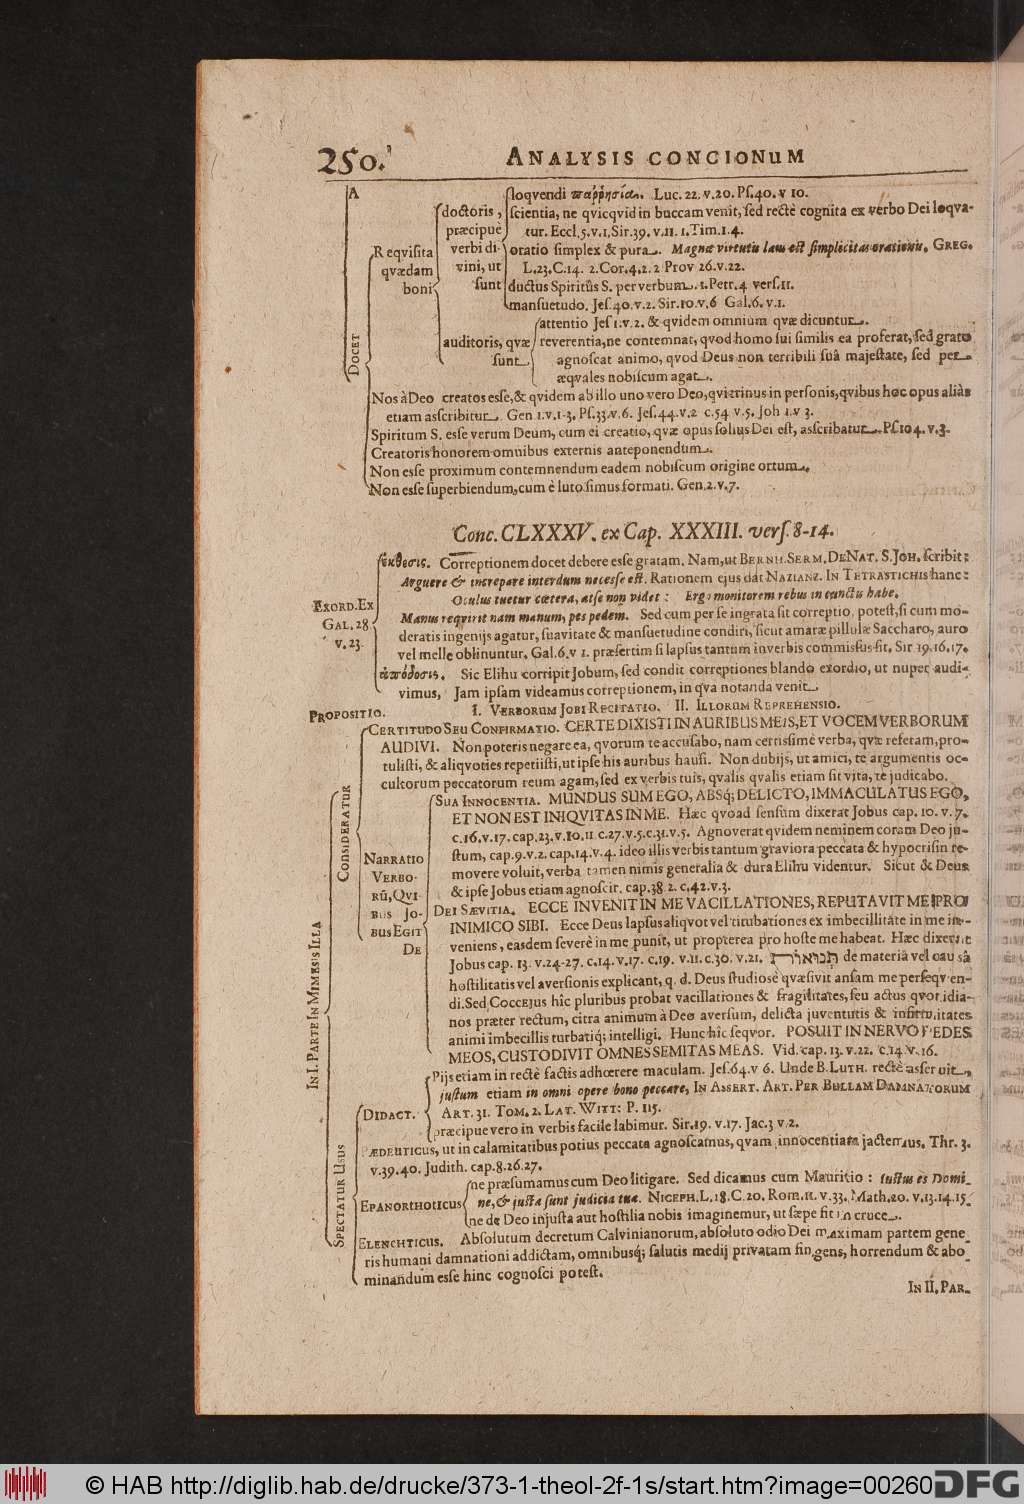 250.
ANALYSIS CONCIONUM
A
DOCET
Reqvisita
qvædam
boni
doctoris,
præcipuè
verbi di-
vini, ut
sunt
loqvendi παῤῥησία. Luc. 22. v. 20. Ps. 40. v 10.
scientia, ne qvicqvid in buccam venit, sed rectè cognita ex verbo Dei loqva-
tur. Eccl. 5. v. 1. Sir. 39. v. 11. 1. Tim. 1. 4.
oratio simplex & pura. Magnæ virtutis laus est simplicitas orationis. GREG.
L. 23. C. 14. 2. Cor. 4. 2. 2 Prov 26. v. 22.
ductus Spiritûs S. per verbum. 1. Petr. 4 vers. 11.
mansuetudo. Jes. 40. v. 2. Sir. 10. v. 6 Gal. 6. v. 1.
auditoris, qvæ
sunt
attentio Jes 1. v. 2. & qvidem omnium qvæ dicuntur.
reverentia, ne contemnat, qvod homo sui similis ea proferat, sed grato
agnoscat animo, qvod Deus non terribili suâ majestate, sed per
æqvales nobiscum agat.
Nos à Deo creatos esse, & qvidem ab illo uno vero Deo, qvi trinus in personis, qvibus hoc opus aliàs
etiam asscribitur. Gen 1. v. 1-3. Ps. 33. v. 6. Jes. 44. v. 2 c. 54 v. 5. Joh 1. v 3.
Spiritum S. esse verum Deum, cum ei creatio, qvæ opus solius Dei est, asscribatur. Ps. 104. v. 3.
Creatoris honorem omnibus externis anteponendum.
Non esse proximum contemnendum eadem nobiscum origine ortum.
Non esse superbiendum, cum è luto simus formati. Gen. 2. v. 7.
Conc. CLXXXV. ex Cap. XXXIII. vers. 8-14.
EXORD. EX
GAL. 28
v. 23.
ἔκθεσις. Correptionem docet debere esse gratam. Nam, ut BERNH. SERM. DE NAT. S. JOH. scribit:
Arguere & increpare interdum necesse est. Rationem ejus dat NAZIANZ. IN TETRASTICHIS hanc:
Oculus tuetur cætera, at se non videt: Ergo monitorem rebus in cunctis habe.
Manus reqvirit nam manum, pes pedem. Sed cum per se ingrata sit correptio, potest, si cum mo-
deratis ingenijs agatur, suavitate & mansuetudine condiri, sicut amaræ pillulæ Saccharo, auro
vel melle oblinuntur. Gal. 6. v 1. præsertim si lapsus tantum in verbis commissus sit. Sir 19. 16. 17.
ἀπόδοσις. Sic Elihu corripit Jobum, sed condit correptiones blando exordio, ut nuper audi-
vimus, Jam ipsam videamus correptionem, in qva notanda venit
PROPOSITIO.
I. VERBORUM JOBI RECITATIO. II. ILLORUM REPREHENSIO.
IN I. PARTE IN MIMESIS ILLA
CONSIDERATUR
CERTITUDO SEU CONFIRMATIO. CERTE DIXISTI IN AURIBUS MEIS, ET VOCEM VERBORUM
AUDIVI. Non poteris negare ea, qvorum te accusabo, nam certissimè verba, qvæ referam, pro-
tulisti, & aliqvoties repetiisti, ut ipse his auribus hausi. Non dubijs, ut amici, te argumentis oc-
cultorum peccatorum reum agam, sed ex verbis tuis, qvalis qvalis etiam sit vita, te judicabo.
NARRATIO
VERBO-
RŨ, QVI
BUS JO-
BUS EGIT
DE
SUA INNOCENTIA. MUNDUS SUM EGO, ABSq; DELICTO, IMMACULATUS EGO,
ET NON EST INIQVITAS IN ME. Hæc qvoad sensum dixerat Jobus cap. 10. v. 7.
c. 16. v. 17. cap. 23. v. 10. 11. c. 27. v. 5. c. 31. v. 5. Agnoverat qvidem neminem coram Deo ju-
stum, cap. 9. v. 2. cap. 14. v. 4. ideo illis verbis tantum graviora peccata & hypocrisin re-
movere voluit, verba tamen nimis generalia & dura Elihu videntur. Sicut & Deus
& ipse Jobus etiam agnoscit. cap. 38. 2. c. 42. v. 3.
DEI SÆVITIA. ECCE INVENIT IN ME VACILLATIONES, REPUTAVIT ME PRO
INIMICO SIBI. Ecce Deus lapsus aliqvot vel titubationes ex imbecillitate in me in-
veniens, easdem severè in me punit, ut propterea pro hoste me habeat. Hæc dixerat
Jobus cap. 13. v. 24-27. c. 14. v. 17. c. 19. v. 11. c. 30. v. 21. תנואות de materiâ vel causâ
hostilitatis vel aversionis explicant, q. d. Deus studiosè qvæsivit ansam me perseqven-
di. Sed COCCEJUS hîc pluribus probat vacillationes & fragilitates, seu actus qvotidia-
nos præter rectum, citra animum à Deo aversum, delicta juventutis & infirmitates
animi imbecillis turbatiq; intelligi. Hunc hîc seqvor. POSUIT IN NERVO PEDES
MEOS, CUSTODIVIT OMNES SEMITAS MEAS. Vid. cap. 13. v. 22. c. 14 v. 16.
SPECTATUR USUS
DIDACT.
Pijs etiam in rectè factis adhœrere maculam. Jes. 64. v 6. Unde B. LUTH. rectè asseruit,
justum etiam in omni opere bono peccare, IN ASSERT. ART. PER BULLAM DAMNATORUM
ART. 31. TOM. 2. LAT. WITT: P. 115.
præcipue vero in verbis facile labimur. Sir. 19. v. 17. Jac. 3 v. 2.
PÆDEUTICUS, ut in calamitatibus potius peccata agnoscamus, qvam innocentiam jactemus. Thr. 3.
v. 39. 40. Judith. cap. 8. 26. 27.
EPANORTHOTICUS
ne præsumamus cum Deo litigare. Sed dicamus cum Mauritio: Iustus es Domi-
ne, & justa sunt judicia tua. NICEPH. L. 18. C. 20. Rom. 11. v. 33. Math. 20. v. 13. 14. 15.
ne de Deo injusta aut hostilia nobis imaginemur, ut sæpe fit in cruce.
ELENCHTICUS. Absolutum decretum Calvinianorum, absoluto odio Dei maximam partem gene
ris humani damnationi addictam, omnibusq; salutis medij privatam fingens, horrendum & abo
minandum esse hinc cognosci potest.
IN II. PAR-
© HAB http://diglib.hab.de/drucke/373-1-theol-2f-1s/start.htm?image=00260
DFG